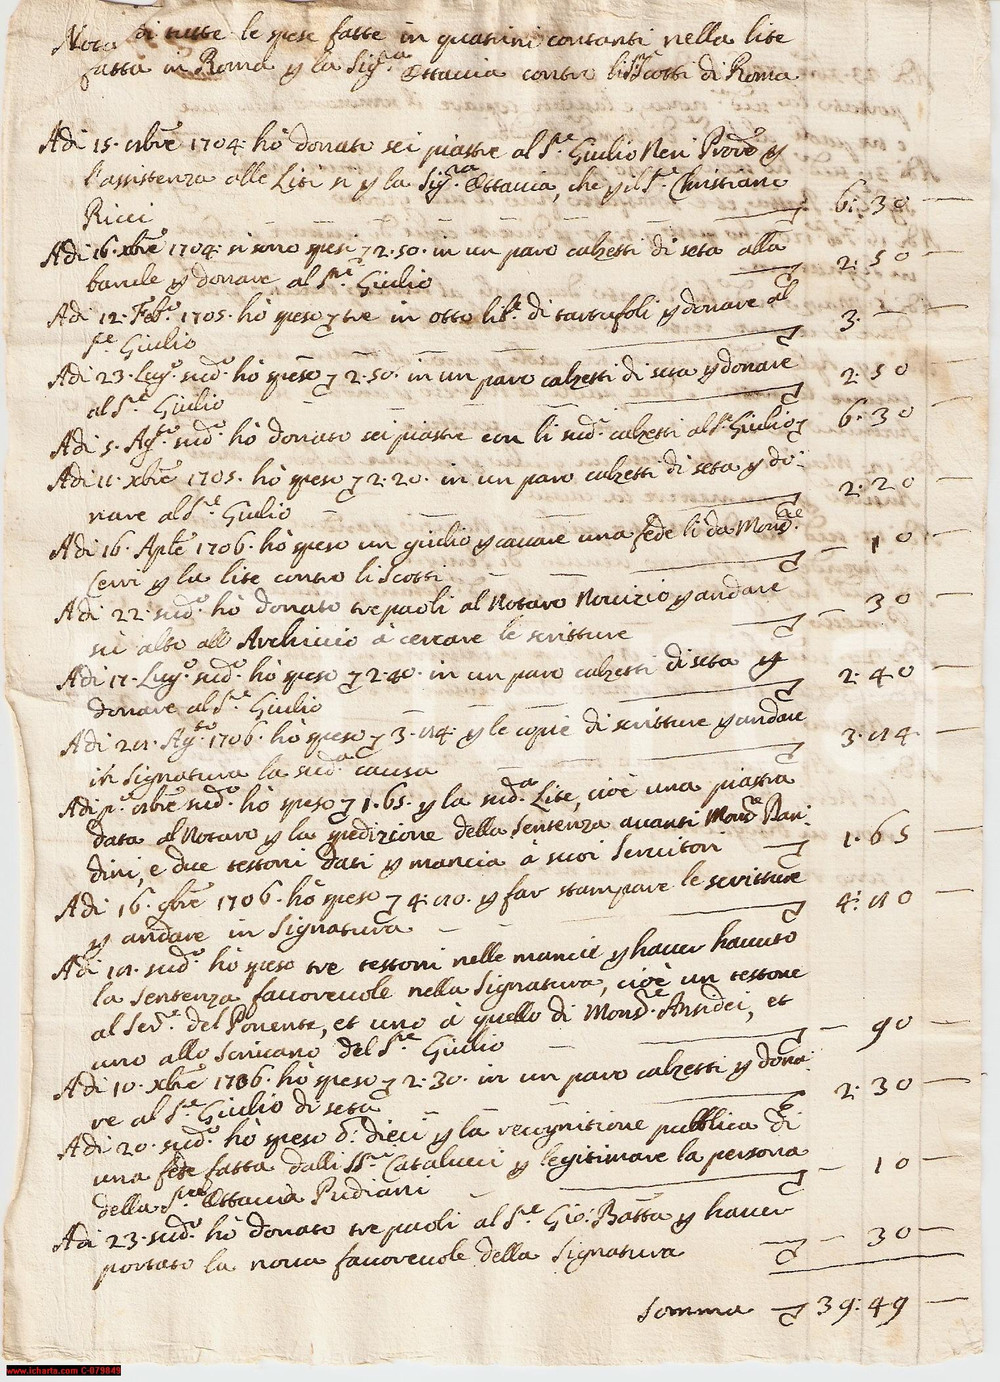 Nota di tutte le spese fatte in quatrini contanti nella lite
fatta in Roma p la Sig.ra Ottavia contro li SS.ri Scotti di Roma
Adi 15. 9bre 1704. hò donato sei piastre al S.re Giulio Neri Proc.re p
l'assistenza alle Liti si p la Sig.ra Ottavia, che p il S.re Christiano
Ricci 6: 30
Adi 16. xbre 1704: si sono spesi 2.50. in un paro calzetti di seta alla
p donare al S.re Giulio 2: 50
Adi 12. Feb.o 1705. hò speso tre in otto lib.e di tartufoli p donare al
S.re Giulio 3. —
Adi 23. Lug.o sud.o hò speso 2.50. in un paro calzetti di seta p donare
al S.re Giulio 2: 50
Adi 5. Ag.to sud.o hò donato sei piastre con li sud.i calzetti al S.re Giulio 6. 30
Adi 11. xbre 1705. hò speso 2.20. in un paro calzetti di seta p do:
nare al S.re Giulio 2: 20
Adi 16. Aple 1706. hò speso un giulio p cavare una fede li da Mons.re
p la lite contro li Scotti — 10
Adi 22. sud.o hò donato tre paoli al Notaro p andare
sù alto all Archivio à cercare le scritture 30
Adi 17. Lug.o sud.o hò speso 2.40. in un paro calzetti di seta p
donare al S.re Giulio 2: 40
Ag.to 1706. hò speso p le copie di scritture p andare
in Signatura la sud.a causa
sud.o hò speso 1.65. p la sud.a Lite, cioè una piastra
data al Notaro p la spedizione della Sentenza avanti Mons.re Ban:
dini, e due testoni dati p mancia à suoi Servitori 1. 65
Adi 16. 9bre 1706. hò speso p far stampare le scritture
p andare in Signatura
sud.o hò speso tre testoni nelle mancie p haver havuto
la Sentenza favorevole nella Signatura, cioè un testone
al Ser.re del Ponente, et uno à quello di Mons.re Ansidei, et
uno allo Scrivano del S.re Giulio — 90
Adi 10. xbre 1706. hò speso 2: 30. in un paro calzetti p dona:
re al S.re Giulio di seta 2: 30
Adi 20. sud.o hò speso b. dieci p la recognitione pubblica di
una fede fatta dalli SS.ri Catalucci p legitimare la persona
della S.ra Ottavia Pudiani — 10
Adi 23. sud.o hò donato tre paoli al S.re Gio: Batta p haver
portato la nova favorevole della Signatura — 30
Somma 39: 49
www.icharta.com C-079849